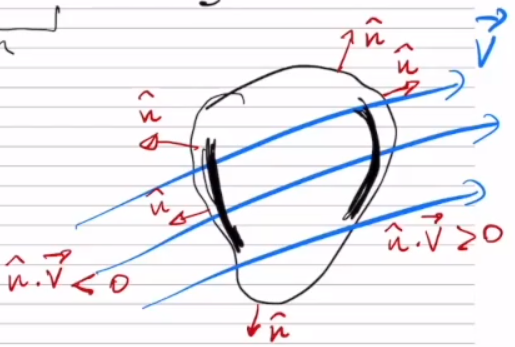 n̂
V⃗
n̂
n̂
n̂
n̂ · V⃗ ≥ 0
n̂ · V⃗ < 0
n̂